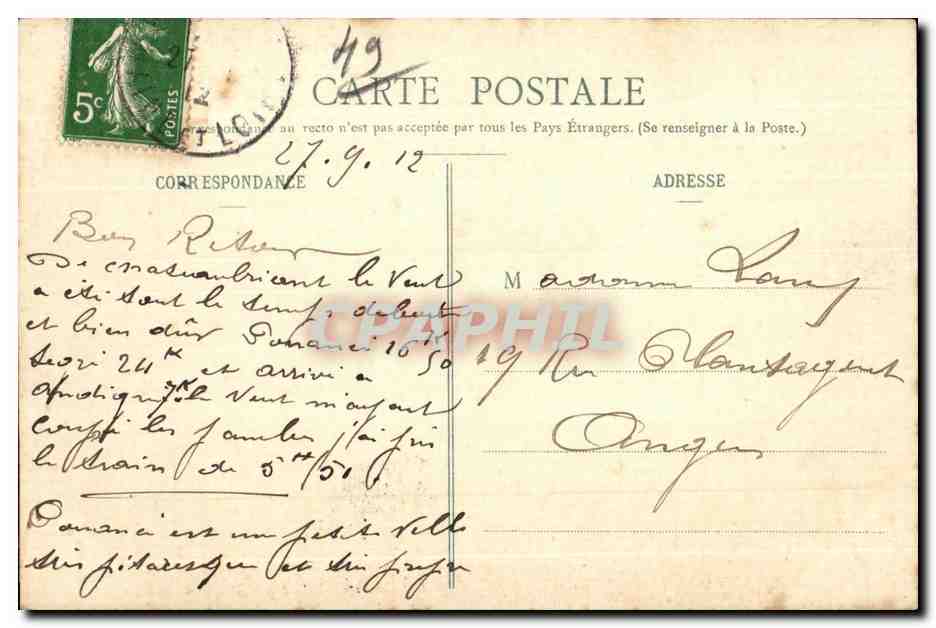 49
5c
POSTES
ET LOIRE
CARTE POSTALE
Correspondance au recto n'est pas acceptée par tous les Pays Étrangers. (Se renseigner à la Poste.)
27.9.12
CORRESPONDANCE
ADRESSE
Bon Retour
De chateaubriant le vent
a été tout le temps debout
et bien dûr Pouancé 16K
Segré 24K et arrivé a
Andigné 7K le vent m'ayant
coupé les jambes j'ai pris
le train de 5H/51
Pouancé est un petit ville
très pitoresque et très propre
Madame
19 Rue Plantagenet
Angers
CPAPHIL